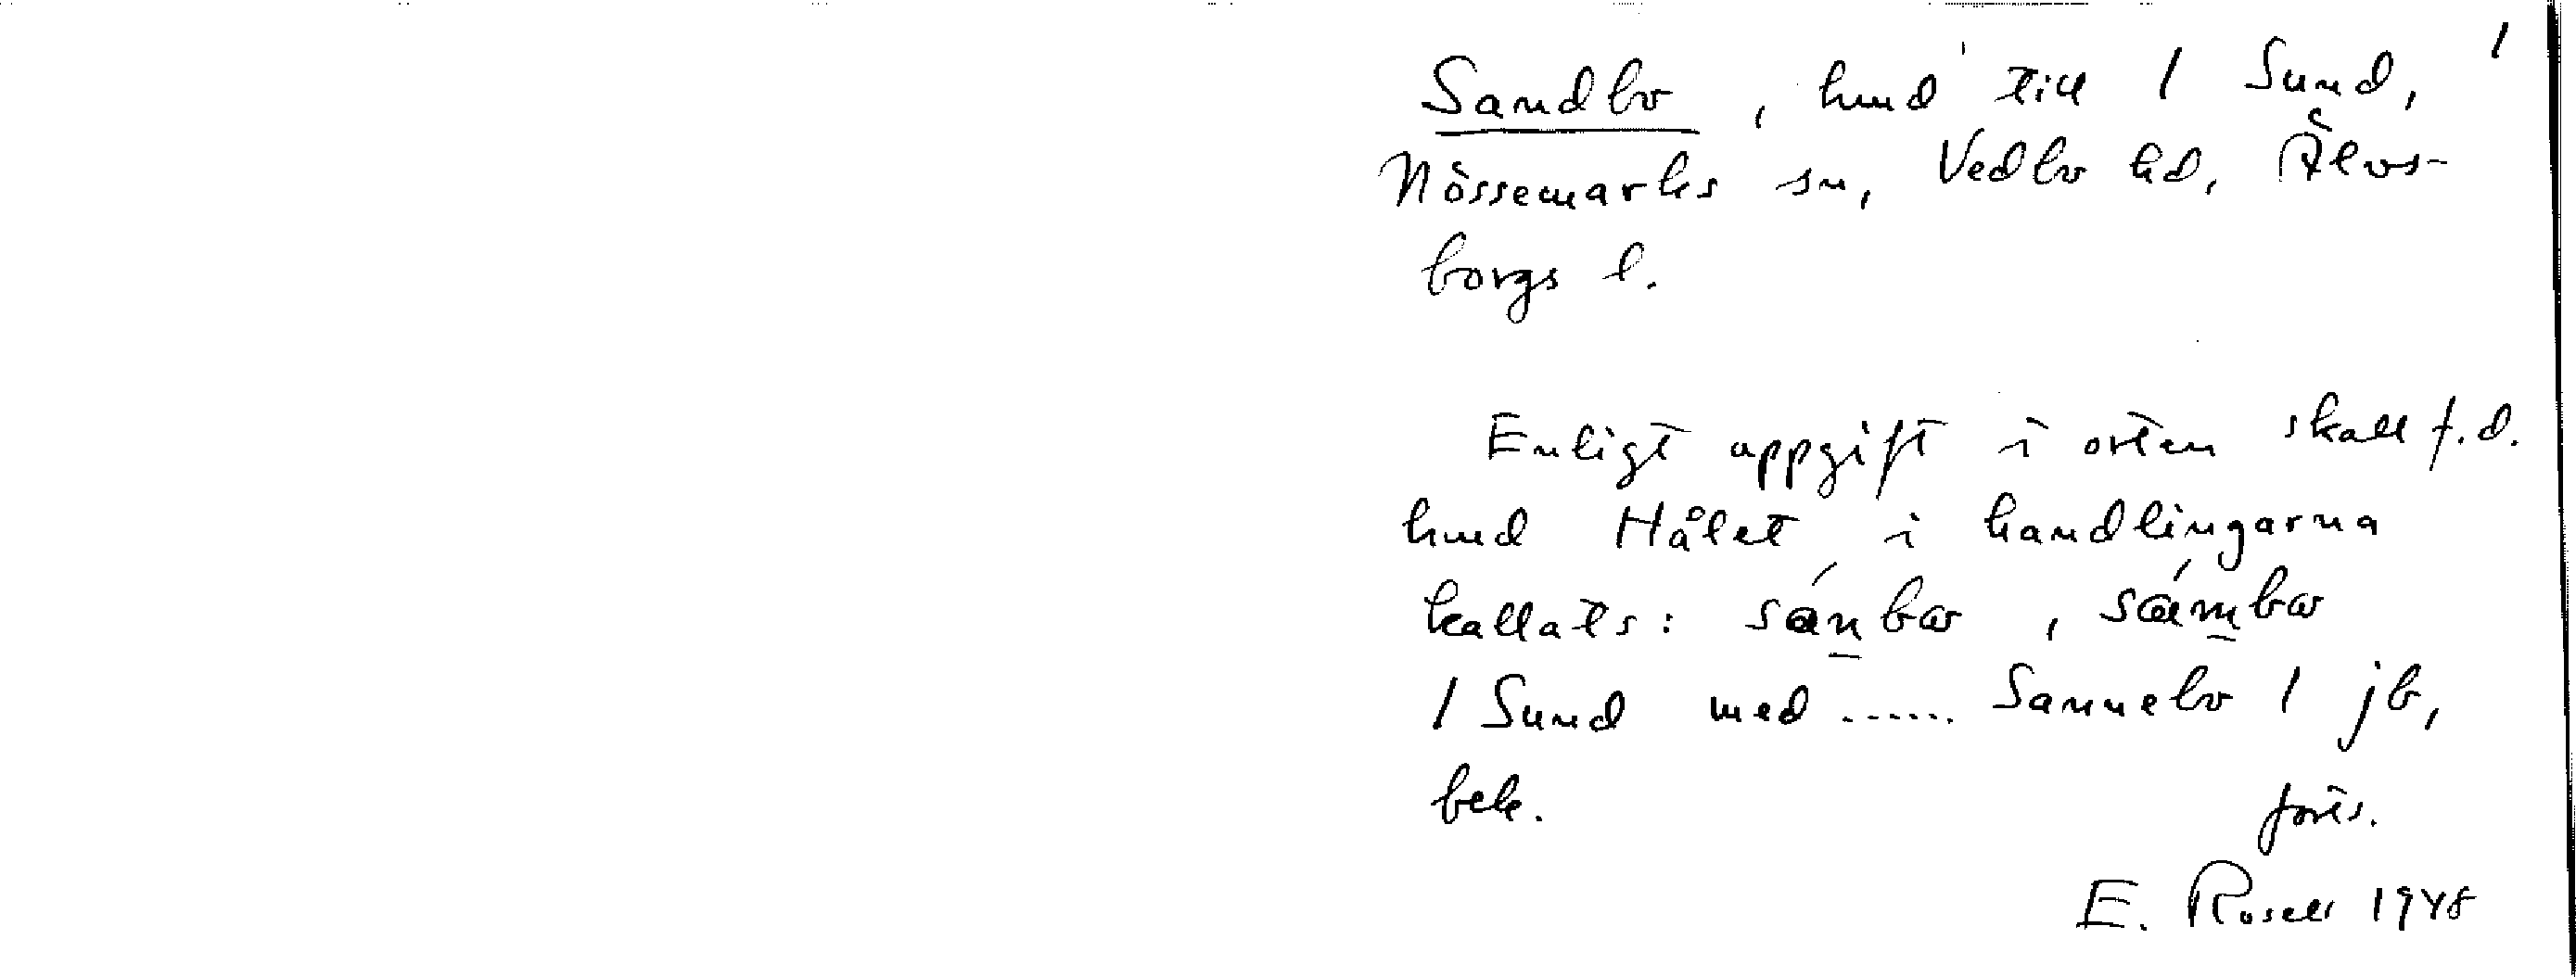 1
Sandbo, hmd till 1 Sund,
Nössemarks sn, Vedbo hd, Älvs-
borgs l.
Enligt uppgift i orten skall f.d.
hmd Hålet i handlingarna
kallats: sánbω, sámbω
1 Sund med ...... Sannebo 1 jb,
bek. forts.
E. Rosell 1948